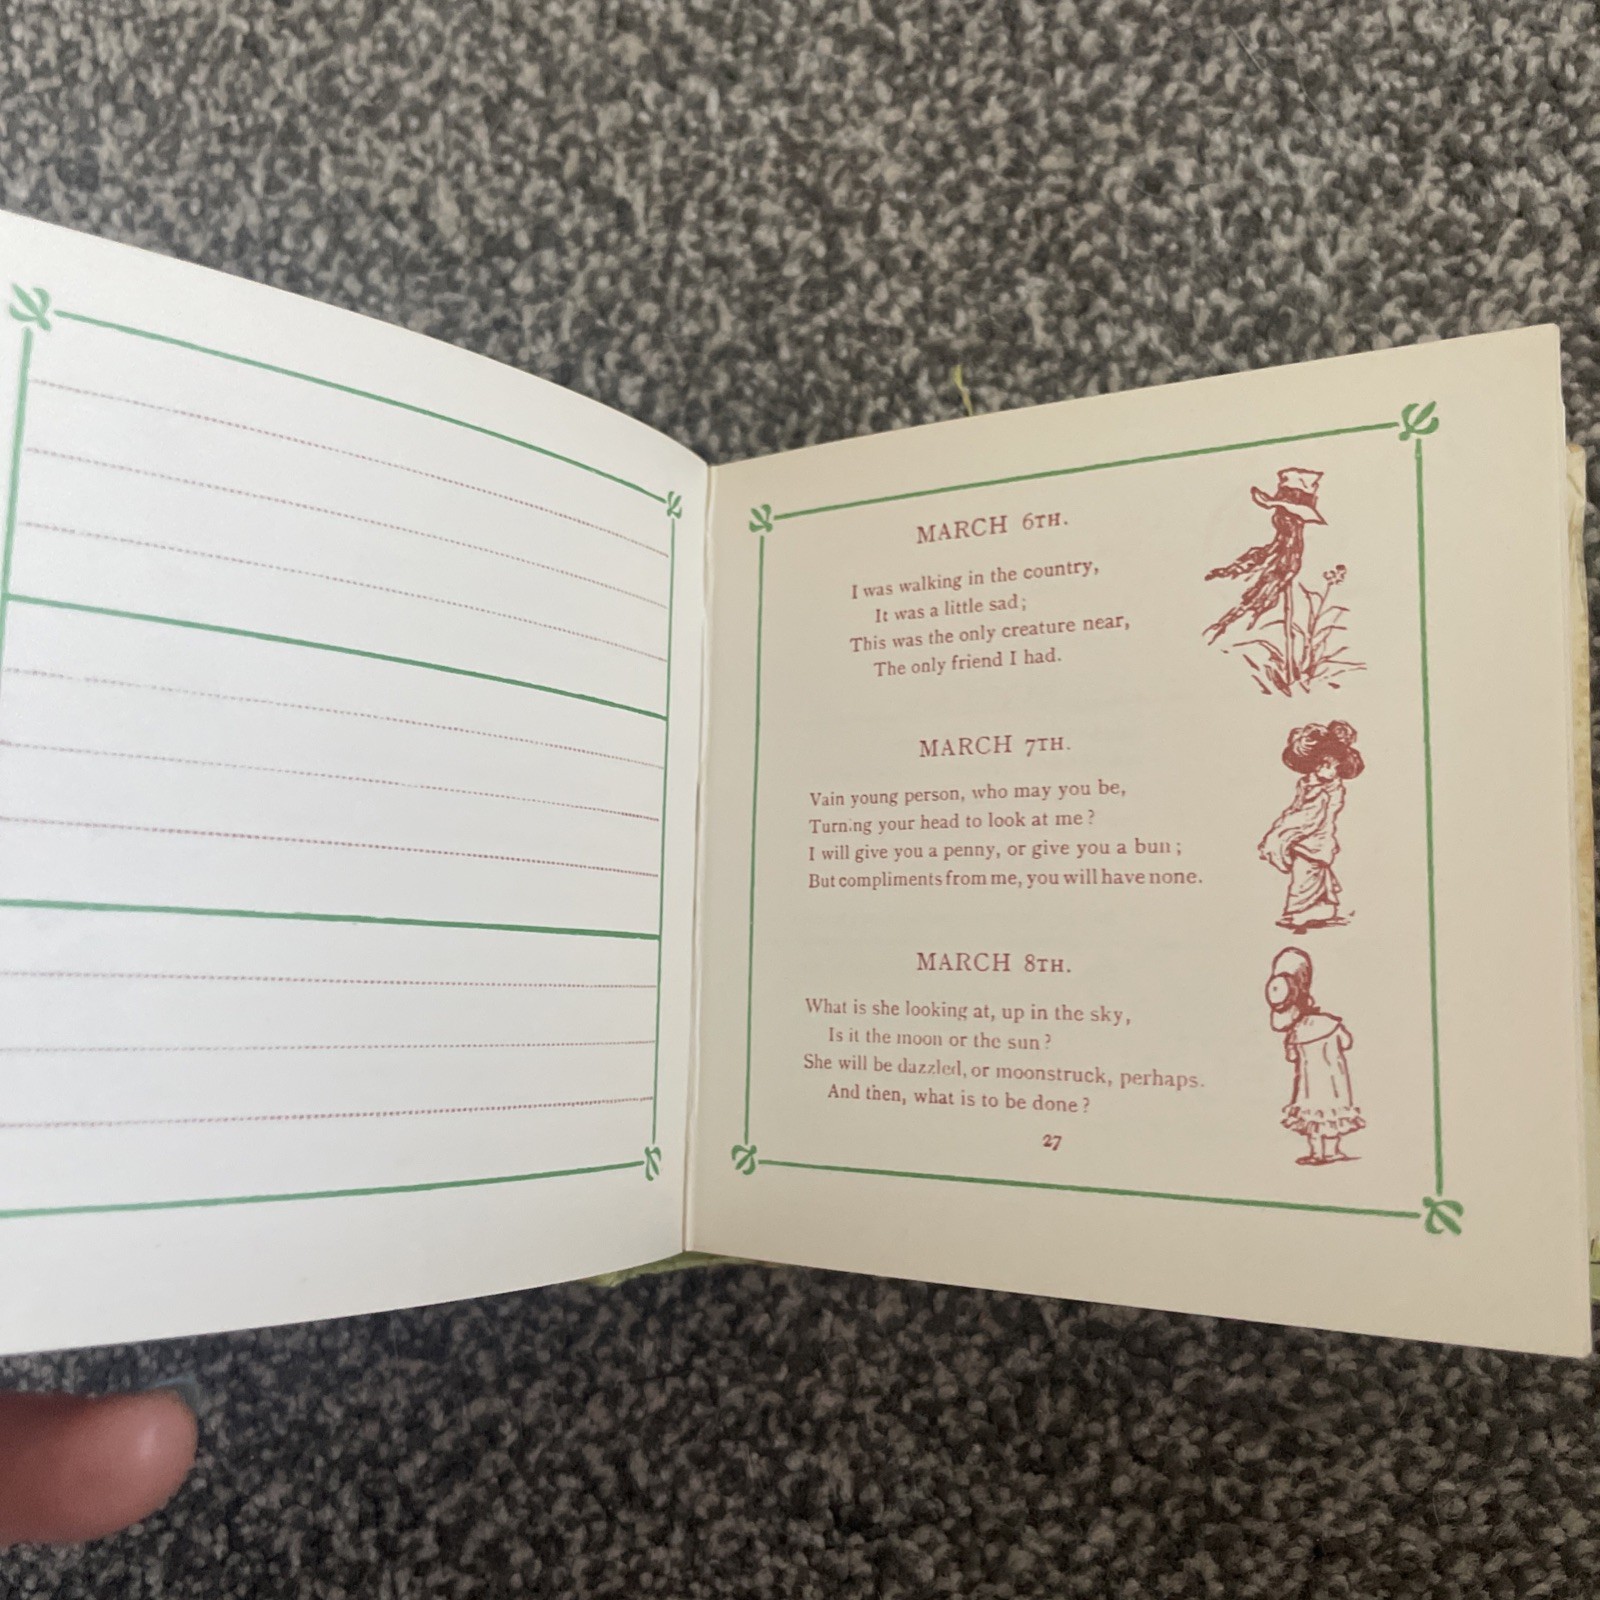 MARCH 6TH.
I was walking in the country,
It was a little sad;
This was the only creature near,
The only friend I had.
MARCH 7TH.
Vain young person, who may you be,
Turning your head to look at me?
I will give you a penny, or give you a bun;
But compliments from me, you will have none.
MARCH 8TH.
What is she looking at, up in the sky,
Is it the moon or the sun?
She will be dazzled, or moonstruck, perhaps.
And then, what is to be done?
27